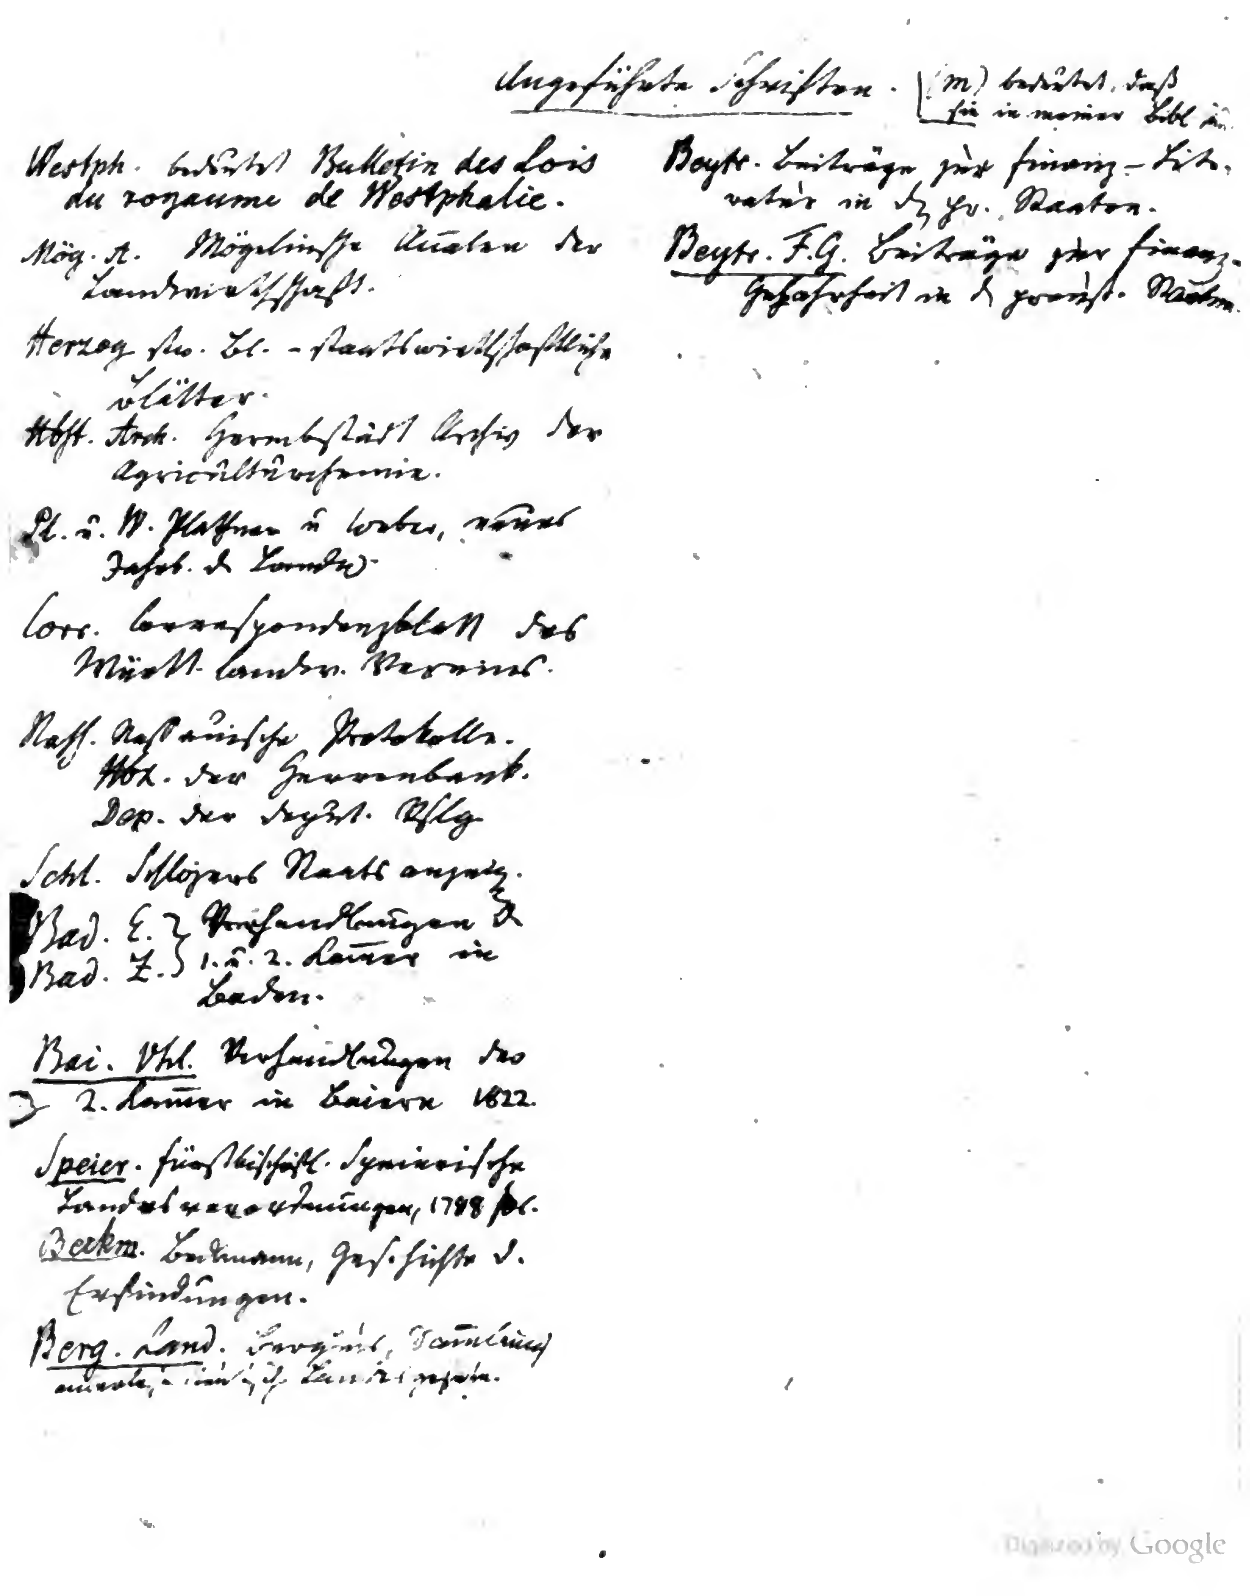 Angeführte Schriften.
(m) bedeutet, daß
sie in meiner Bibl
Westph. bedeutet Bulletin des Lois
du royaume de Westphalie.
Mög. A. Mögelinsche Annalen der
Landwirthschaft.
Herzog stw. Bl. - staatswirthschaftliche
Blätter.
Hbst. Arch. Hermbstädt Archiv der
Agriculturchemie.
Pl. u. W. Plathner u Weber, neues
Jahrb. d. Landw.
Corr. Correspondenzblatt des
Württ. landw. Vereines.
Nass. Nassauische Protokolle.
Hbk. der Herrenbank.
Dep. der deput. Vslg
Schl. Schlözers Staatsanzeig.
Bad. E. } Verhandlungen d.
Bad. Z. } 1. u. 2. Kammer in
Baden.
Bai. Vhl. Verhandlungen der
2. Kammer in Baiern 1822.
Speier. fürstbischöfl. Speierische
Landesverordnungen, 1788 fol.
Beckm. Beckmann, Geschichte d.
Erfindungen.
Berg. Land. Bergius, Sammlung
Landesgesetze.
Beytr. Beiträge zur Finanz-Lite-
ratur in d. pr. Staaten.
Beytr. F.G. Beiträge zur Finanz-
Gelahrheit in d. preuß. Staaten.
Digitized by Google